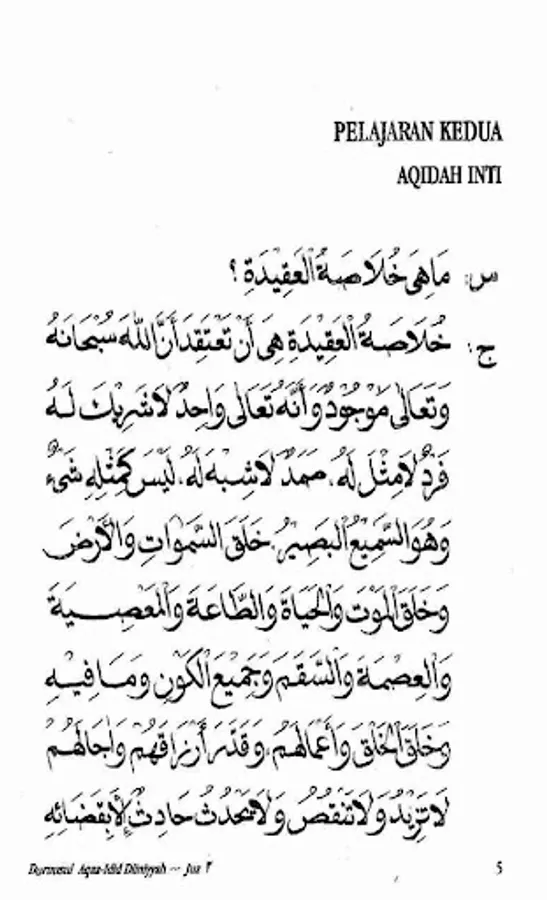 PELAJARAN KEDUA
AQIDAH INTI
س: مَاهِيَ خُلَاصَةُ الْعَقِيْدَةِ ؟
ج: خُلَاصَةُ الْعَقِيْدَةِ هِيَ أَنْ تَعْتَقِدَ أَنَّ اللّٰهَ سُبْحَانَهُ
وَتَعَالَى مَوْجُودٌ وَأَنَّهُ تَعَالَى وَاحِدٌ لَا شَرِيْكَ لَهُ
فَرْدٌ لَا مِثْلَ لَهُ، صَمَدٌ لَا شِبْهَ لَهُ، لَيْسَ كَمِثْلِهِ شَيْءٌ
وَهُوَ السَّمِيْعُ الْبَصِيْرُ، خَلَقَ السَّمٰوَاتِ وَالْأَرْضَ
وَخَلَقَ الْمَوْتَ وَالْحَيَاةَ وَالطَّاعَةَ وَالْمَعْصِيَةَ
وَالْعِصْمَةَ وَالسَّقَمَ وَجَمِيْعَ الْكَوْنِ وَمَا فِيْهِ
وَخَلَقَ الْخَلْقَ وَأَعْمَالَهُمْ، وَقَدَّرَ أَرْزَاقَهُمْ وَآجَالَهُمْ
لَا تَزِيْدُ وَلَا تَنْقُصُ وَلَا يَحْدُثُ حَادِثٌ إِلَّا بِقَضَائِهِ
Duruusul Aqaa-idid Diiniyyah — Juz ٣
5